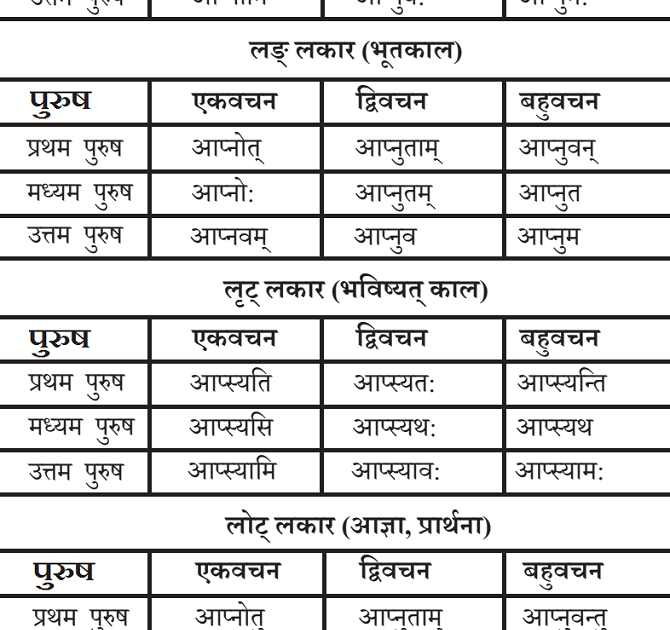 उत्तम पुरुष
लङ् लकार (भूतकाल)
पुरुष एकवचन द्विवचन बहुवचन
प्रथम पुरुष आप्नोत् आप्नुताम् आप्नुवन्
मध्यम पुरुष आप्नो: आप्नुतम् आप्नुत
उत्तम पुरुष आप्नवम् आप्नुव आप्नुम
लृट् लकार (भविष्यत् काल)
पुरुष एकवचन द्विवचन बहुवचन
प्रथम पुरुष आप्स्यति आप्स्यत: आप्स्यन्ति
मध्यम पुरुष आप्स्यसि आप्स्यथ: आप्स्यथ
उत्तम पुरुष आप्स्यामि आप्स्याव: आप्स्याम:
लोट् लकार (आज्ञा, प्रार्थना)
पुरुष एकवचन द्विवचन बहुवचन
प्रथम पुरुष आप्नोतु आप्नुताम् आप्नुवन्तु